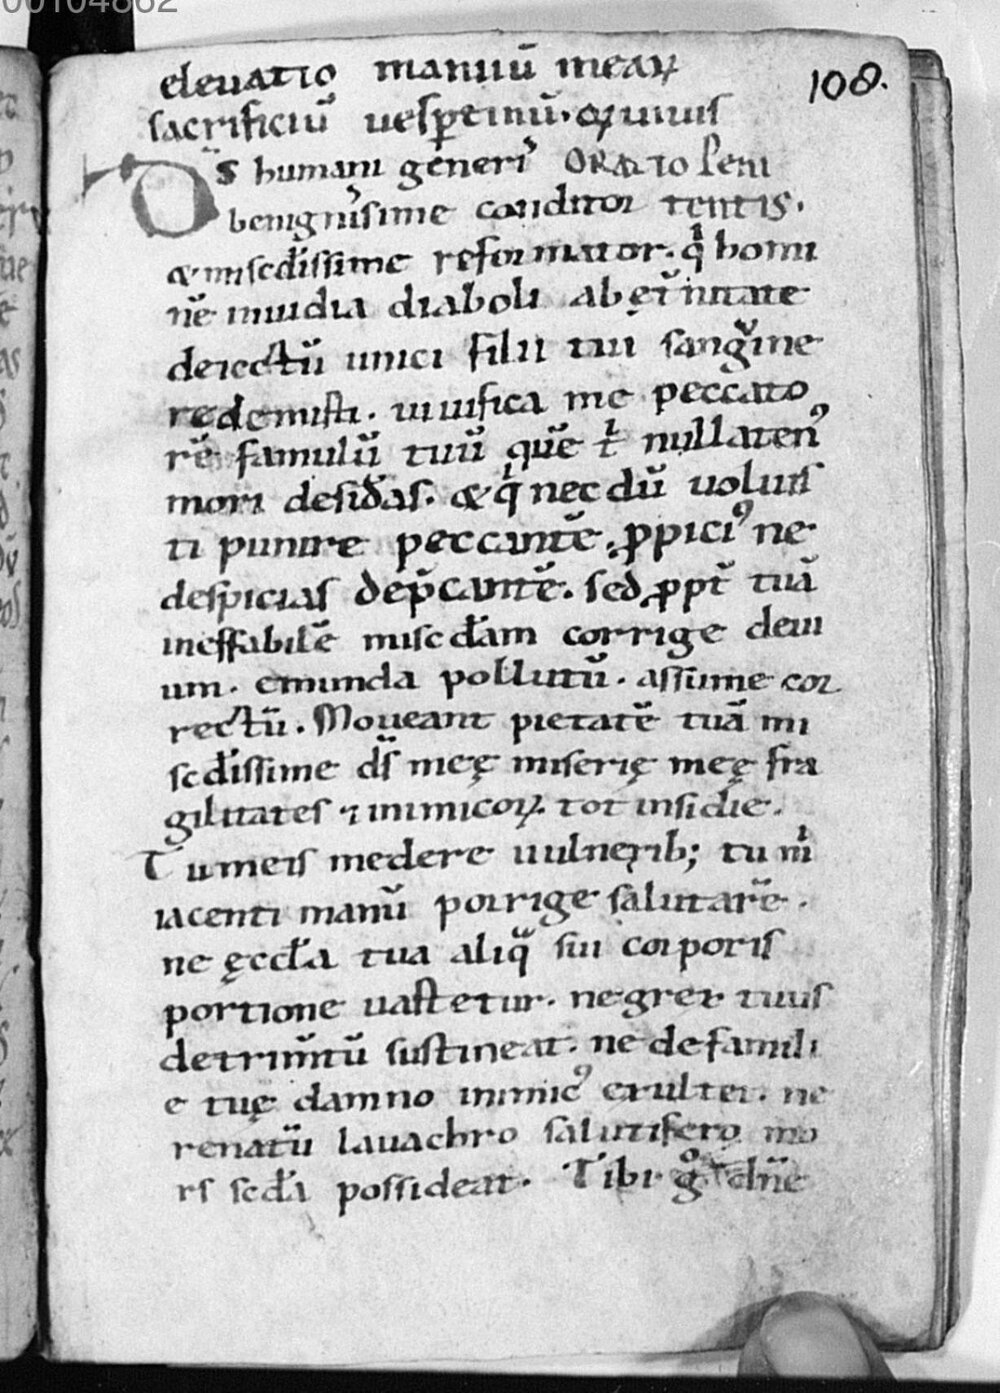 00104862
108.
eleuatio manuū mearꝝ
sacrificiū uesꝑtinū. Q̄ uiuis
D̄s humani generis ORATIO Peni
benignissime conditor tentis.
& misc̄dissime reformator. qͥ homi
nē inuidia diaboli ab et̄nitate
deiectū unici filii tui sanguine
redemisti. uiuifica me peccato
rē famulū tuū quē tͥ nullatenꝰ
mori desid̄as. & qͥ nec dū uoluis
ti punire peccantē. ꝓpiciꝰ ne
despicias dep̄cantē. sed ꝓpt̄ tuā
ineffabilē misc̄dam corrige deui
um. emunda pollutū. assume cor
rectū. Moueant pietatē tuā mi
sc̄dissime d̄s meę miserię meę fra
gilitates ⁊ inimicoꝝ tot insidie.
Tu meis medere uulnęrib; tu mͥ
iacenti manū porrige salutarē.
ne ęccl̄a tua aliqͣ sui corporis
portione uastetur. ne grex tuus
detrim̄tū sustineat. ne de famili
e tuę damno inimicꝰ exultet. ne
renatū lauachro salutifero mo
rs sc̄da possideat. Tibi gͦ d̄ne